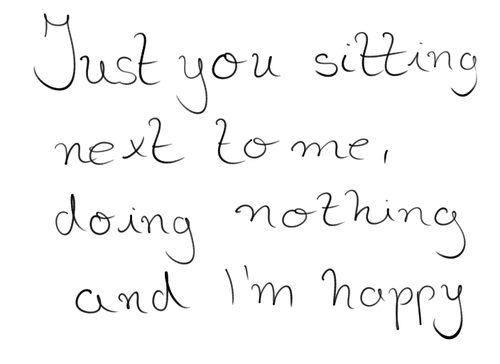 Just you sitting
next to me,
doing nothing
and I'm happy